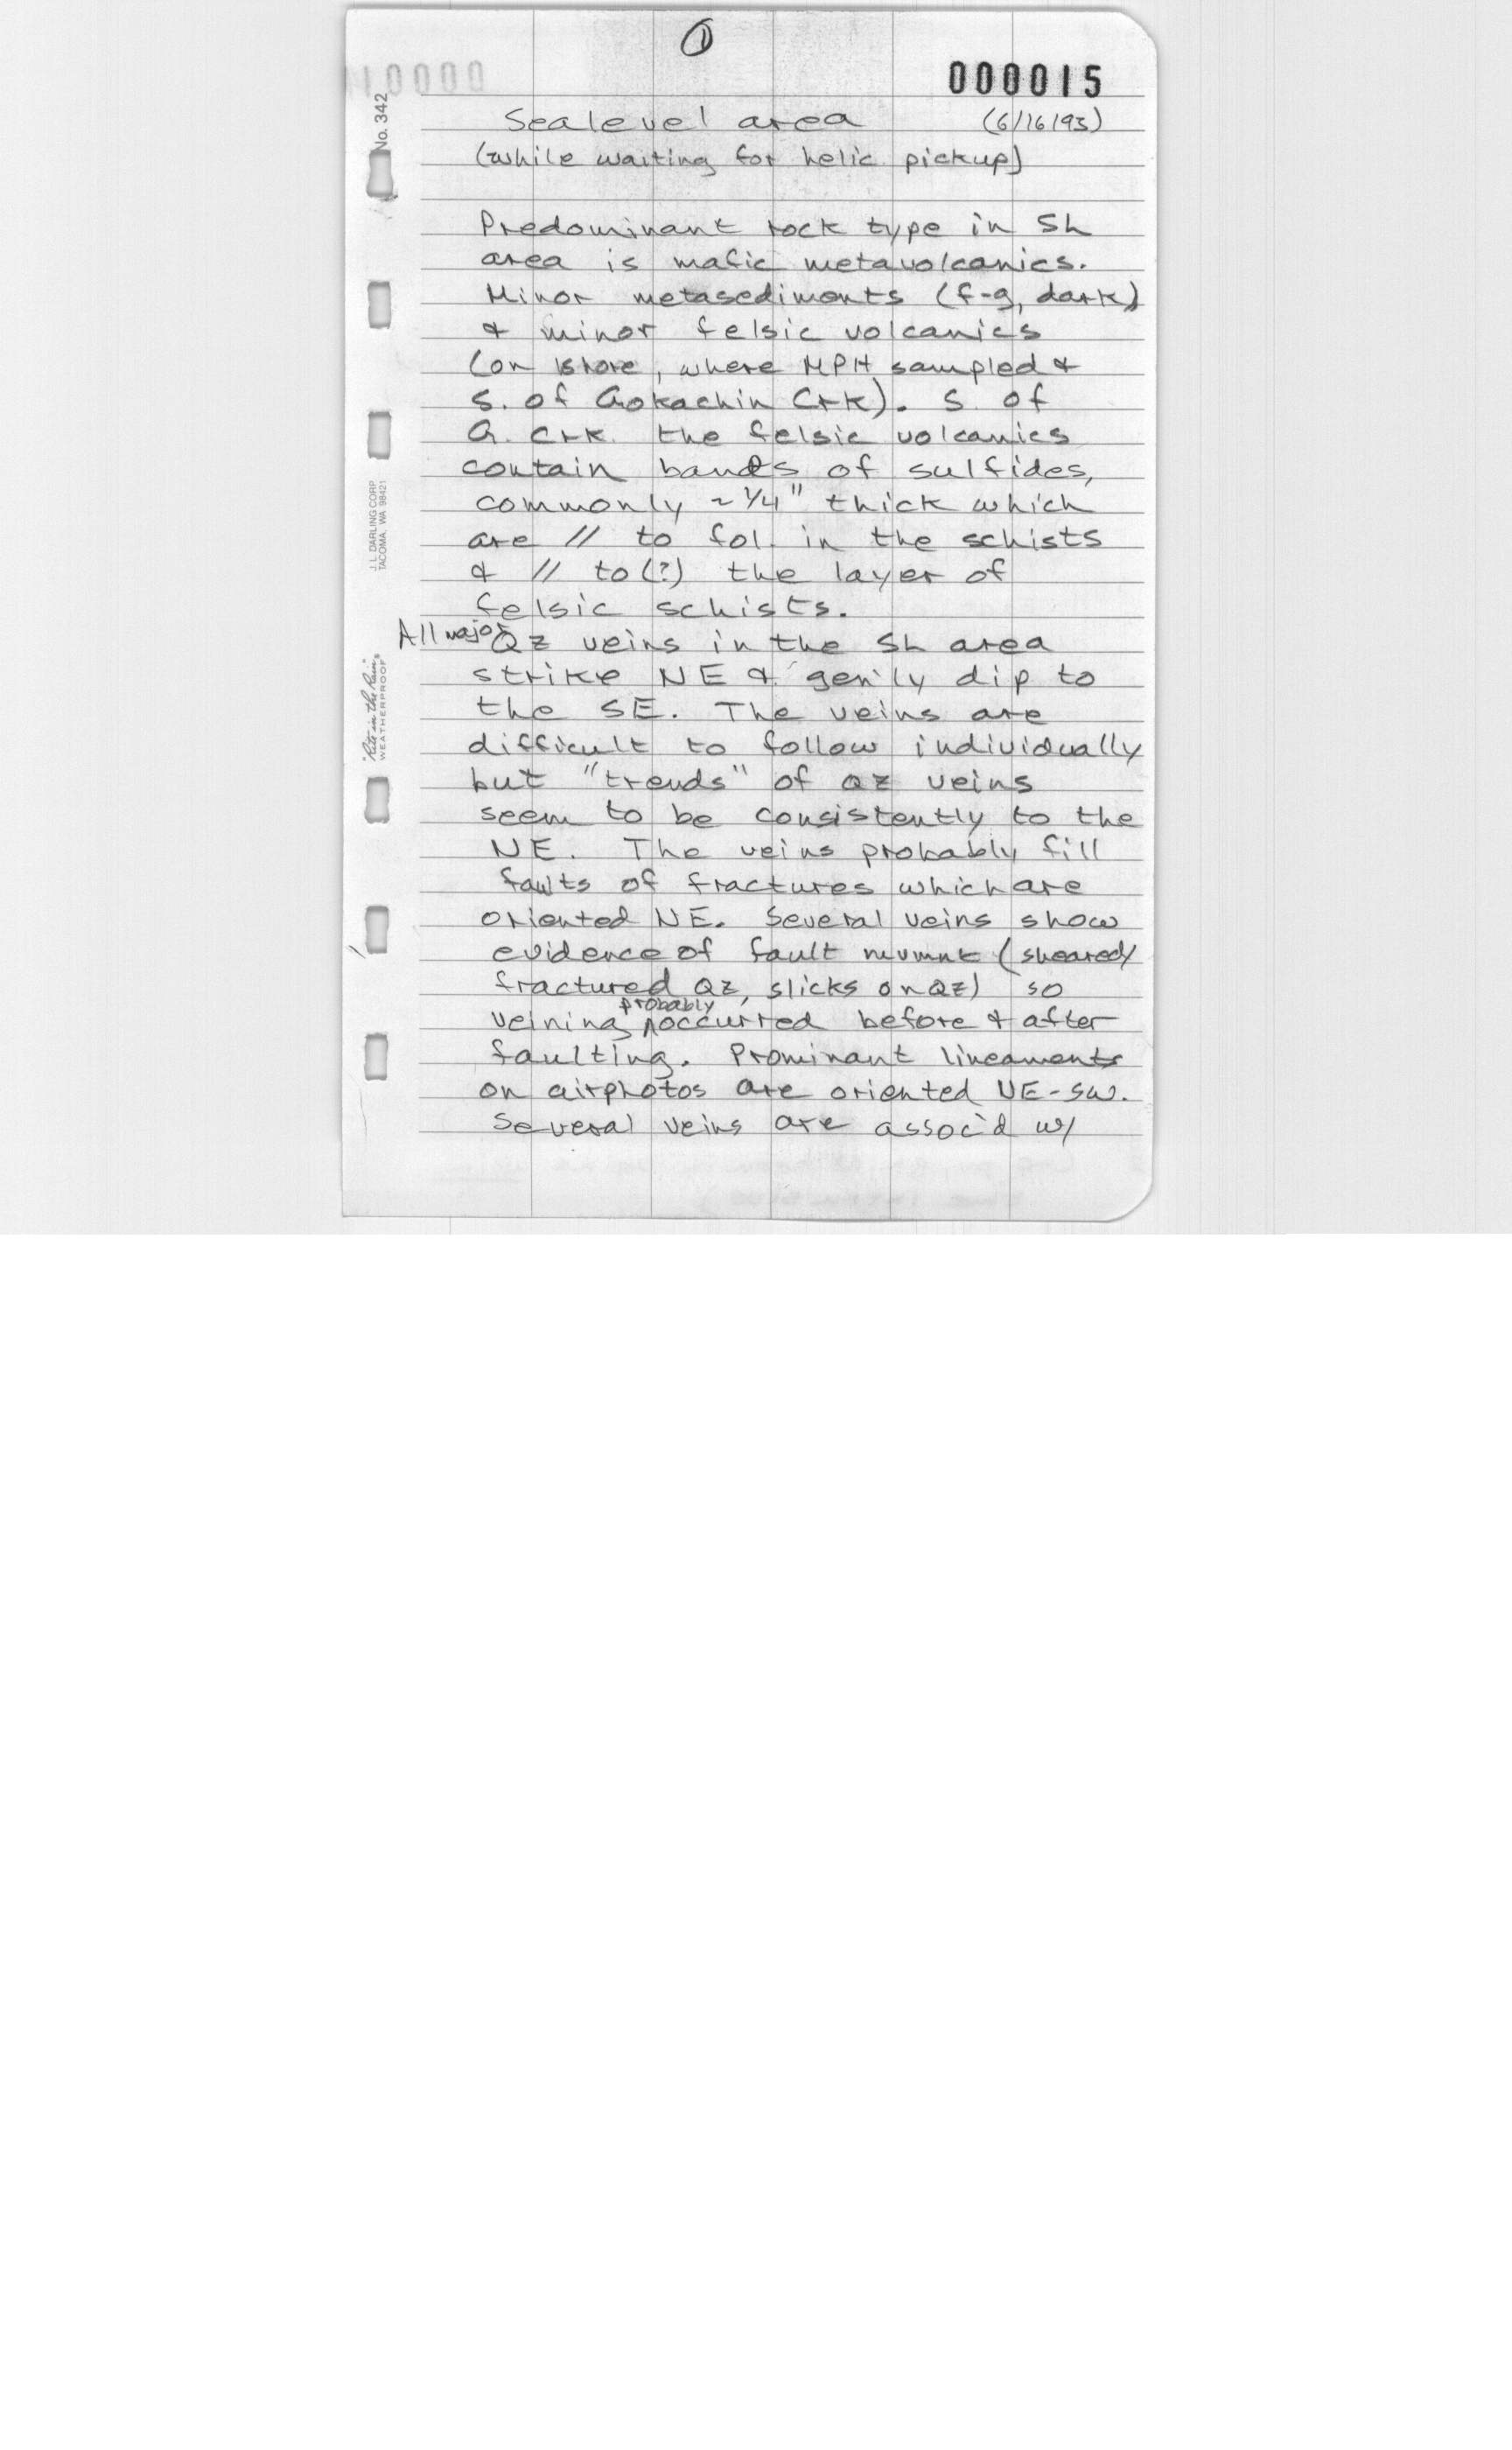 ①
000015
No. 342
Sealevel area (6/16/93)
(while waiting for helic. pickup)
Predominant rock type in SL
area is mafic metavolcanics.
Minor metasediments (f-g, dark)
& minor felsic volcanics
(on shore, where MPH sampled &
S. of Gokachin Crk). S. of
G. Crk. the felsic volcanics
contain bands of sulfides,
commonly ~ 1/4" thick which
are // to fol. in the schists
& // to (?) the layer of
felsic schists.
All major Qz veins in the SL area
strike NE & gen'ly dip to
the SE. The veins are
difficult to follow individually
but "trends" of Qz veins
seem to be consistently to the
NE. The veins probably fill
faults of fractures which are
oriented NE. Several veins show
evidence of fault mvmnt (sheared/
fractured Qz, slicks on Qz) so
veining probably occurred before & after
faulting. Prominant lineaments
on airphotos are oriented NE-SW.
Several veins are assoc'd w/
J. L. DARLING CORP
TACOMA, WA 98421
"Rite in the Rain"
WEATHERPROOF